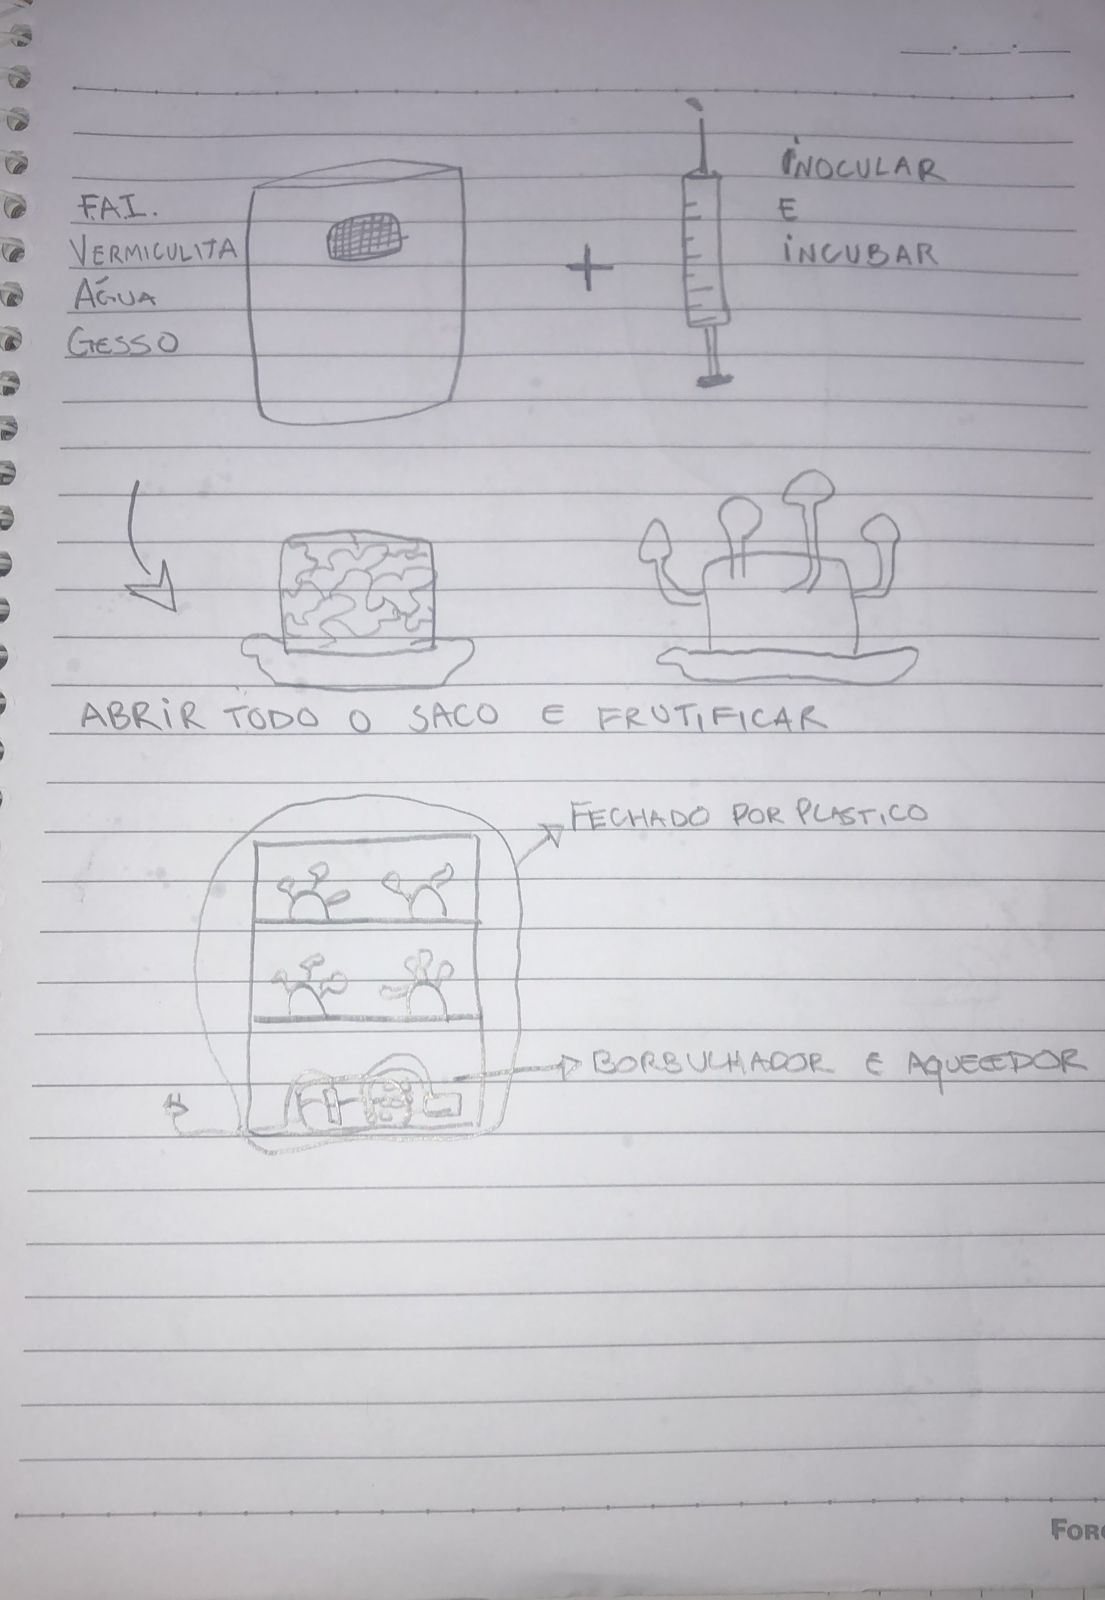 F.A.I.
VERMICULITA
ÁGUA
GESSO
INOCULAR
E
INCUBAR
ABRIR TODO O SACO E FRUTIFICAR
FECHADO POR PLASTICO
BORBULHADOR E AQUECEDOR